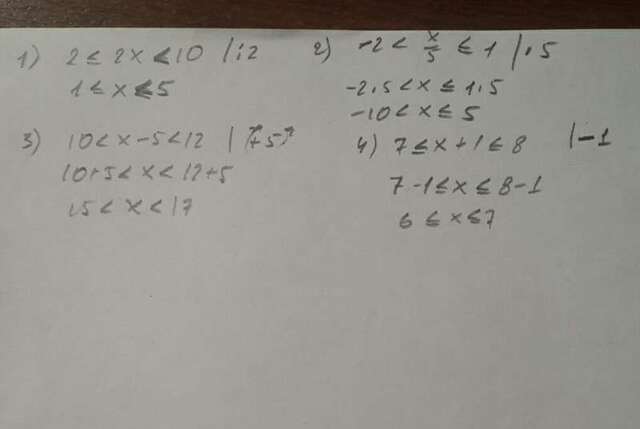 1) 2 ≤ 2x < 10 | :2
1 ≤ x < 5
2) -2 < x/5 ≤ 1 | · 5
-2·5 < x ≤ 1·5
-10 < x ≤ 5
3) 10 < x - 5 < 12 | "+5"
10+5 < x < 12+5
15 < x < 17
4) 7 ≤ x + 1 ≤ 8 | -1
7-1 ≤ x ≤ 8-1
6 ≤ x ≤ 7